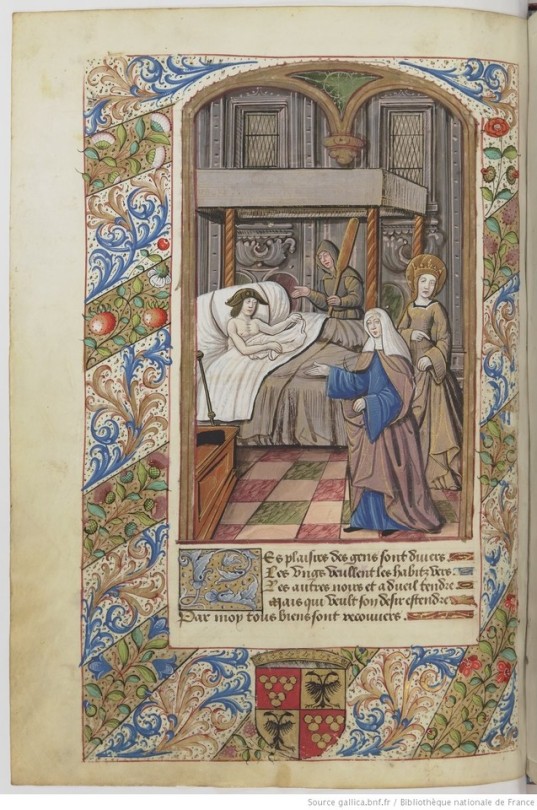 Les plaisirs des gens sont divers
Les ungz veullent les habitz vers
Les autres noirs et a dueil tendre
Mais qui veult son desir estendre
Par moy tous biens sont recouvers.
Source gallica.bnf.fr / Bibliothèque nationale de France